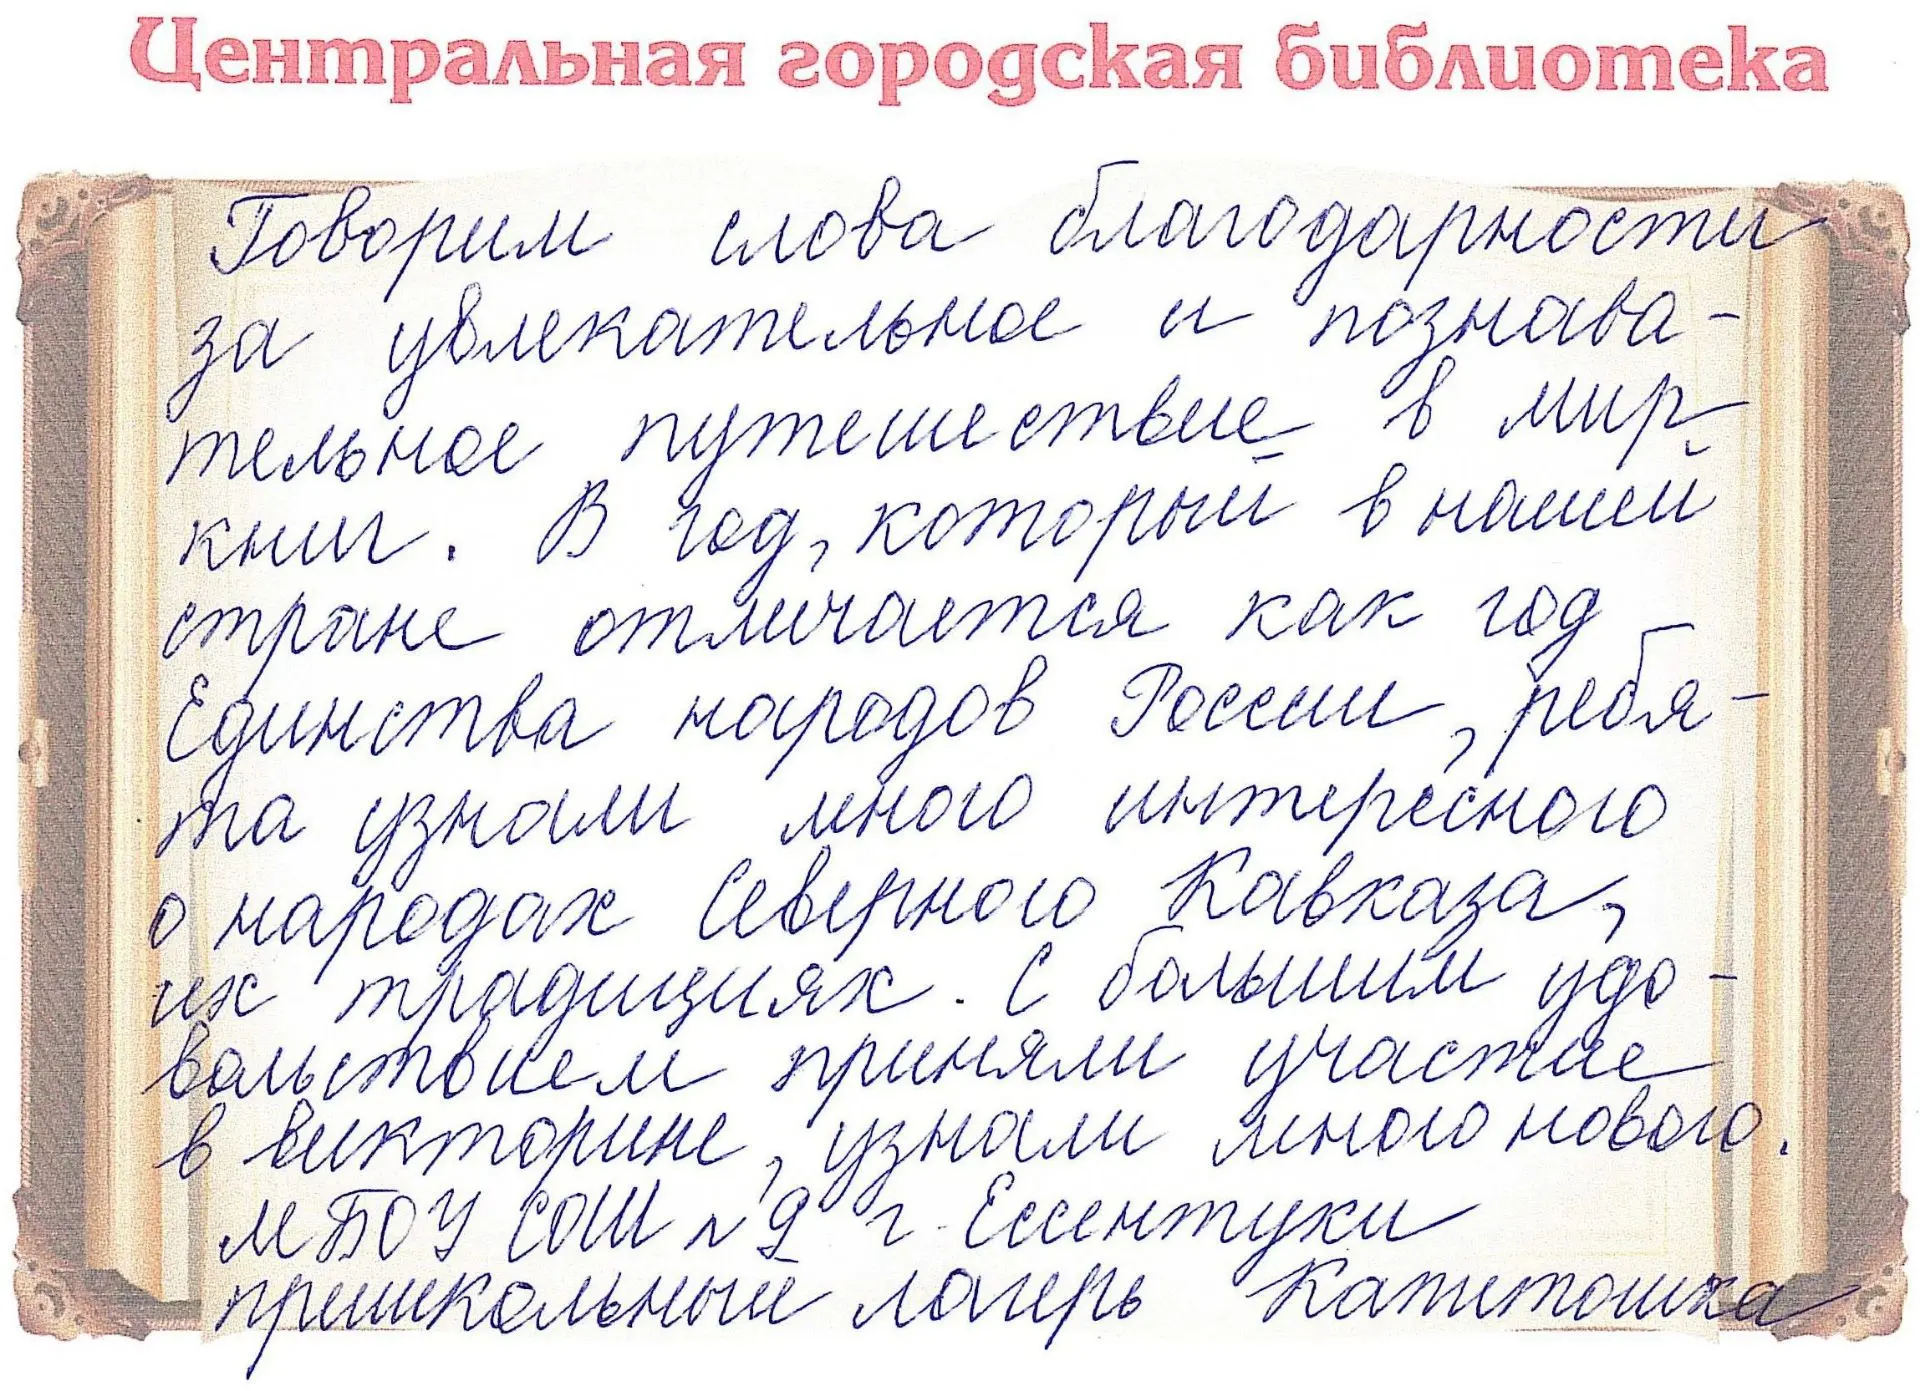 Центральная городская библиотека
Говорим слова благодарности
за увлекательное и познава-
тельное путешествие в мир
книг. В год, который в нашей
стране отмечается как год
Единства народов России, ребя-
та узнали много интересного
о народах Северного Кавказа,
их традициях. С большим удо-
вольствием приняли участие
в викторине, узнали много нового.
МБОУ СОШ №9 г. Ессентуки
пришкольный лагерь Капитошка